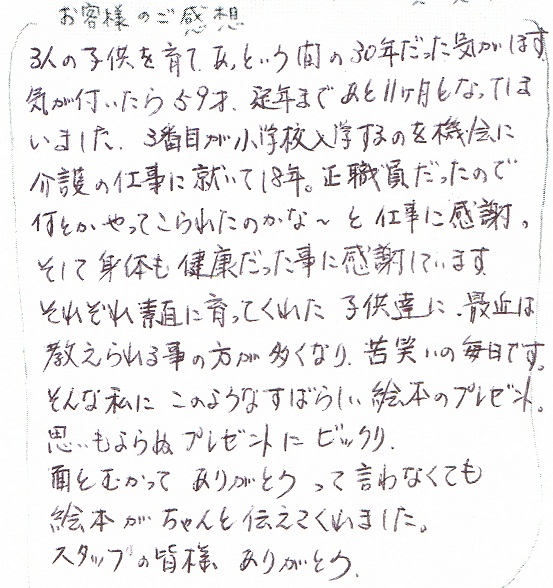 お客様のご感想
3人の子供を育て、あっという間の30年だった気がします
気が付いたら59才、定年まであと11ヶ月となってしま
いました。3番目が小学校入学するのを機会に
介護の仕事に就いて18年。正職員だったので
何とかやってこられたのかな〜と仕事に感謝。
そして身体も健康だった事に感謝しています
それぞれ素直に育ってくれた子供達に、最近は
教えられる事の方が多くなり、苦笑いの毎日です。
そんな私にこのようなすばらしい絵本のプレゼント。
思いもよらぬプレゼントにビックリ、
面とむかってありがとうって言わなくても
絵本がちゃんと伝えてくれました。
スタッフの皆様、ありがとう、